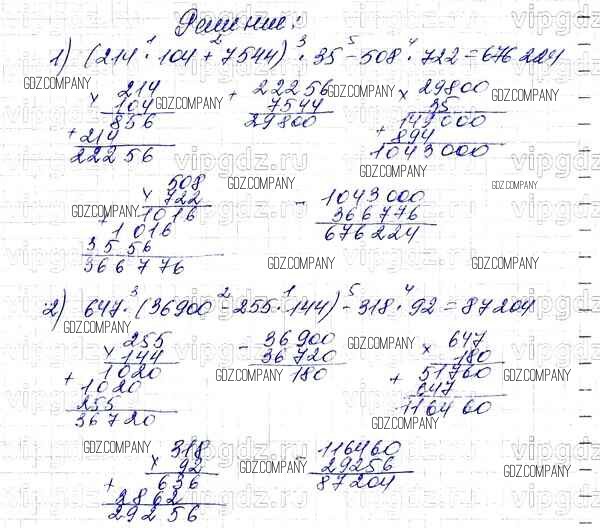 Решение:
1) (214 · 104 + 7544) · 35 - 508 · 722 = 676 224
1 2 3 5 4
214
× 104
856
+ 214
22256
+ 22256
7544
29800
× 29800
35
149000
+ 894
1043000
× 508
722
1016
+ 1016
3556
366776
- 1043000
366776
676224
2) 647 · (36900 - 255 · 144) - 318 · 92 = 87204
3 2 1 5 4
255
× 144
1020
+ 1020
255
36720
- 36900
36720
180
× 647
180
51760
+ 647
116460
× 318
92
636
+ 2862
29256
- 116460
29256
87204
GDZ.COMPANY
vipgdz.ru